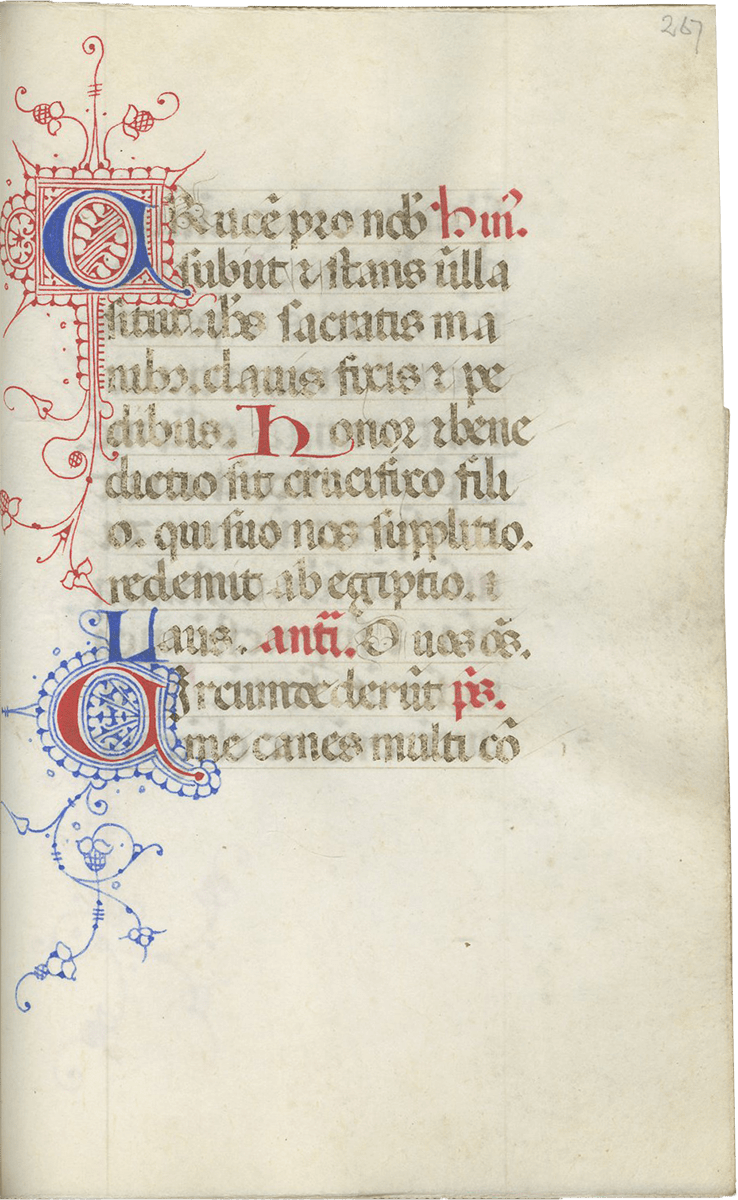 267
CRucē pro nob̄ hiīn̄.
subiit ⁊ stans in̄ illa
sitiit. ihs̄ sacratis ma
nibꝫ. clauis fixis ⁊ pe
dibus. Honor ⁊ bene
dictio sit crucifixo fili
o. qui suo nos supplitio.
redemit ab egiptio.
Laus. antī. O uos oēs.
Circumdederūt pͣs.
me canes multi cō